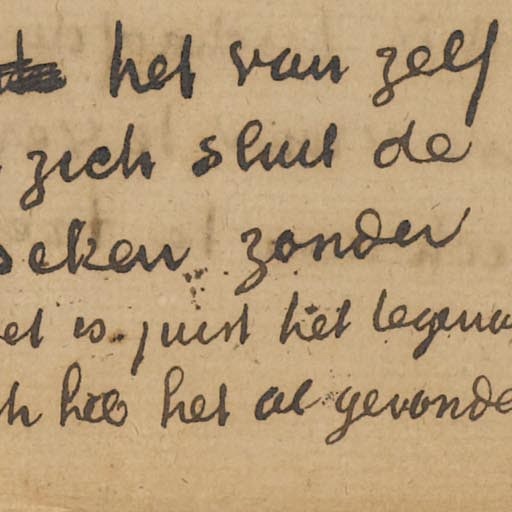 het van zelf
zich sluit de
oeken zonder
et is juist het tegeno
h heb het al gevonde